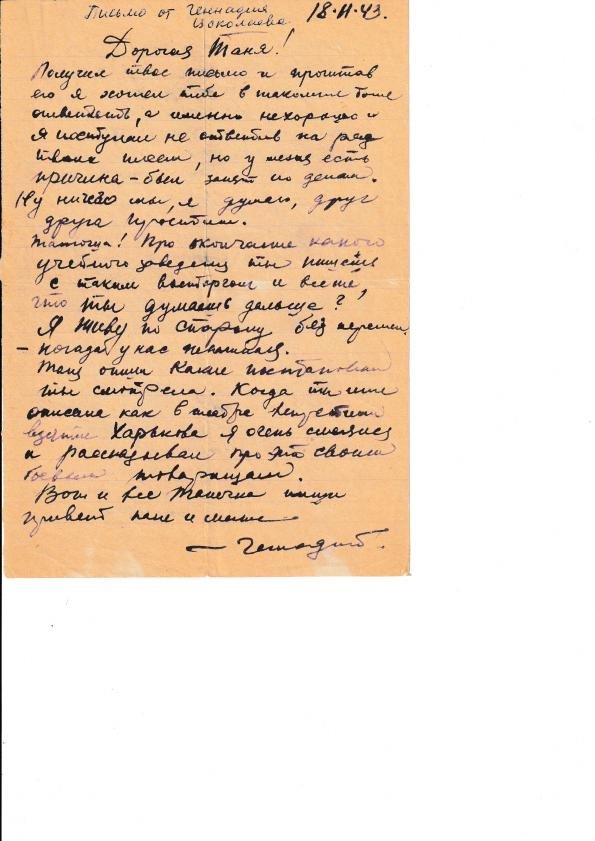 Письмо от Геннадия
Цоколаева
18.II.43.
Дорогая Таня!
Получил твое письмо и прочитав
его я хотел тебе в таком же тоне
ответить, а именно нехорошо и
я поступил не ответив на ряд
твоих писем, но у меня есть
причина – был занят по делам.
Ну ничего мы, я думаю, друг
друга простим.
Про окончание какого
учебного заведения ты пишешь
с таким восторгом и
что ты думаешь дальше?
Я живу по старому без перемен
– погода у нас
опиши какие постановки
ты смотрела. Когда ты мне
описала как в театре
взятие Харькова я очень смеялся
и рассказывал про это своим
боевым товарищам.
Вот и все Танечка пиши
привет папе и маме
– Геннадий.